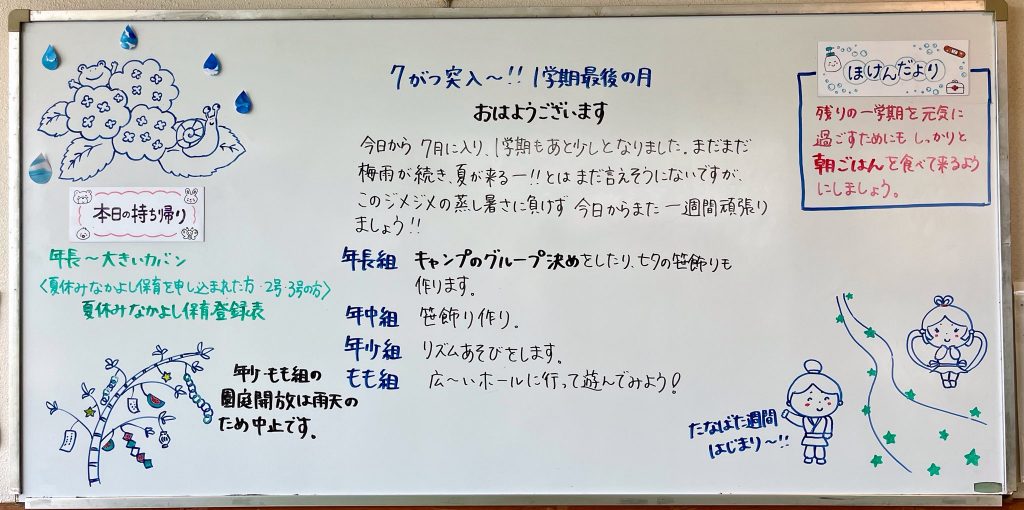 7がつ突入～!! 1学期最後の月
おはようございます
今日から 7月に入り、1学期もあと少しとなりました。まだまだ
梅雨が続き、夏が来るー!!とは まだ言えそうにないですが、
このジメジメの蒸し暑さに負けず 今日からまた 一週間頑張り
ましょう!!
年長組 キャンプのグループ決めをしたり、七夕の笹飾りも
作ります。
年中組 笹飾り作り。
年少組 リズムあそびをします。
もも組 広～いホールに行って遊んでみよう!
本日の持ち帰り
年長～大きいカバン
〈夏休みなかよし保育を申し込まれた方・2号・3号の方〉
夏休みなかよし保育登録表
年少・もも組の
園庭開放は雨天の
ため中止です。
ほけんだより
残りの一学期を元気に
過ごすためにも しっかりと
朝ごはんを食べて来るよう
にしましょう。
たなばた週間
はじまり～!!